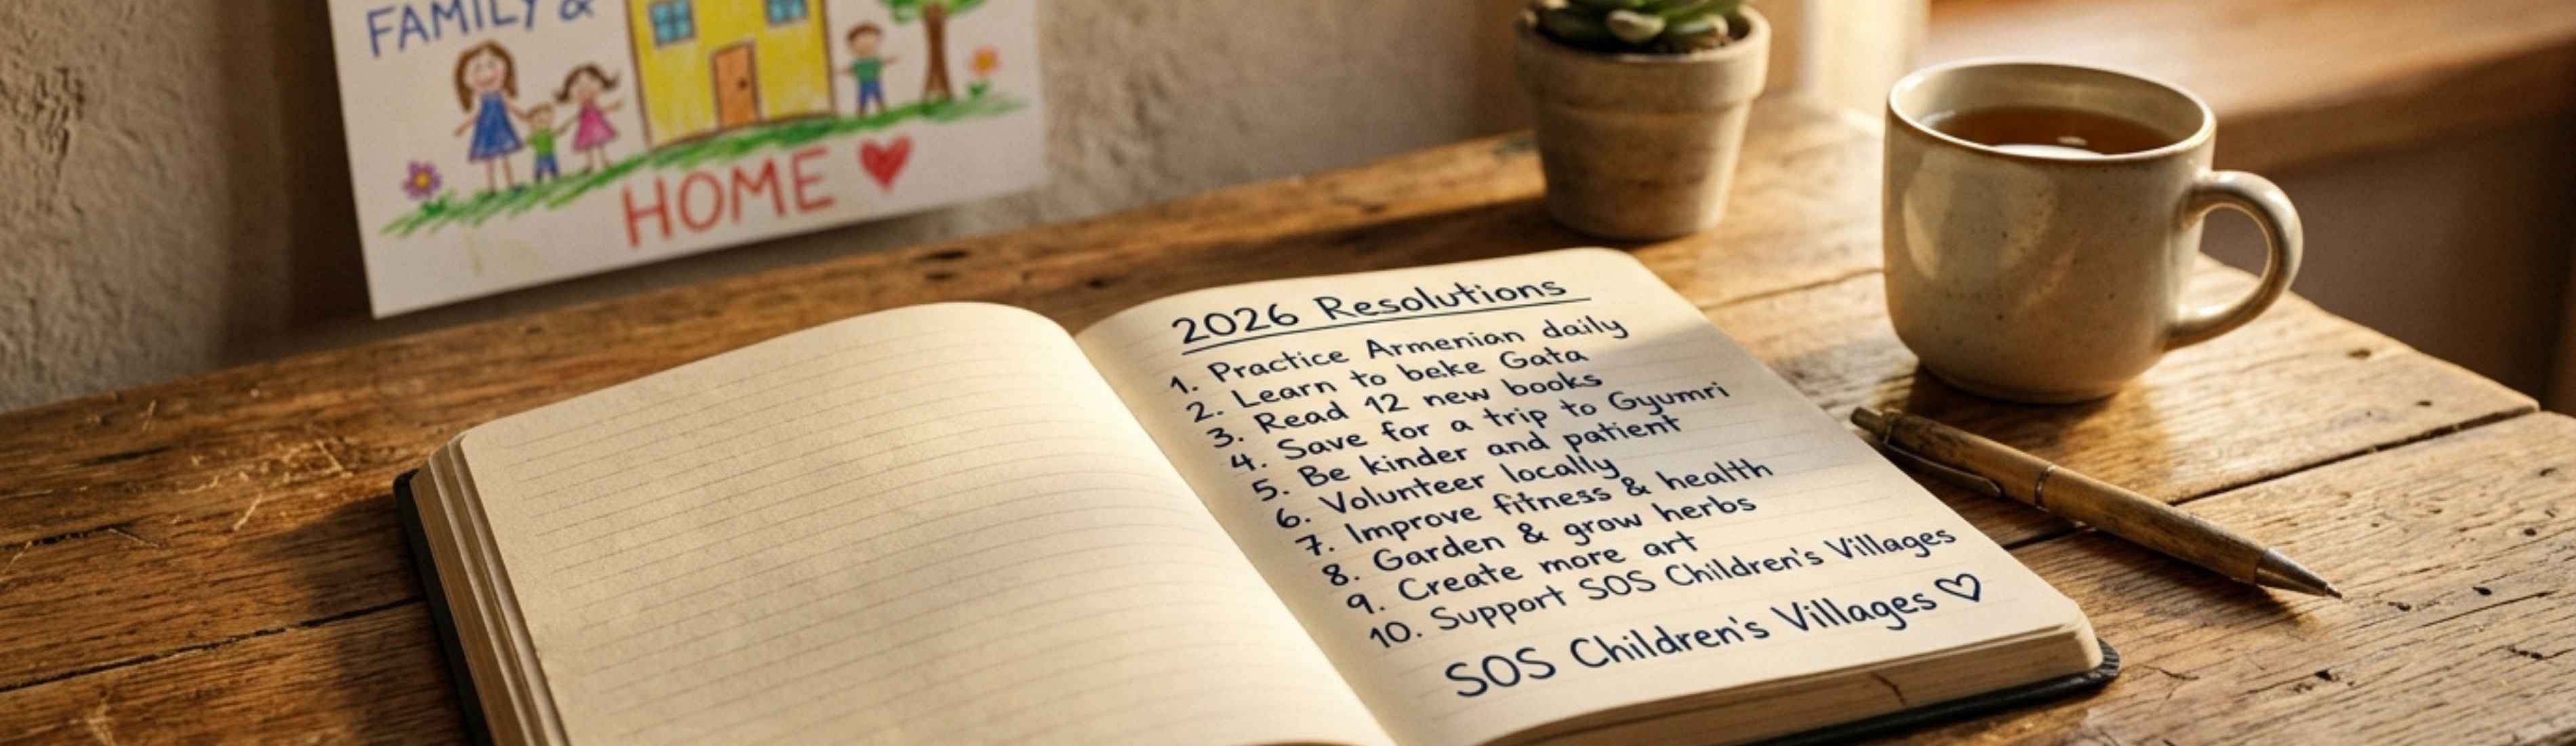 FAMILY &
HOME
2026 Resolutions
1. Practice Armenian daily
2. Learn to beke Gata
3. Read 12 new books
4. Save for a trip to Gyumri
5. Be kinder and patient
6. Volunteer locally
7. Improve fitness & health
8. Garden & grow herbs
9. Create more art
10. Support SOS Children's Villages
SOS Children's Villages